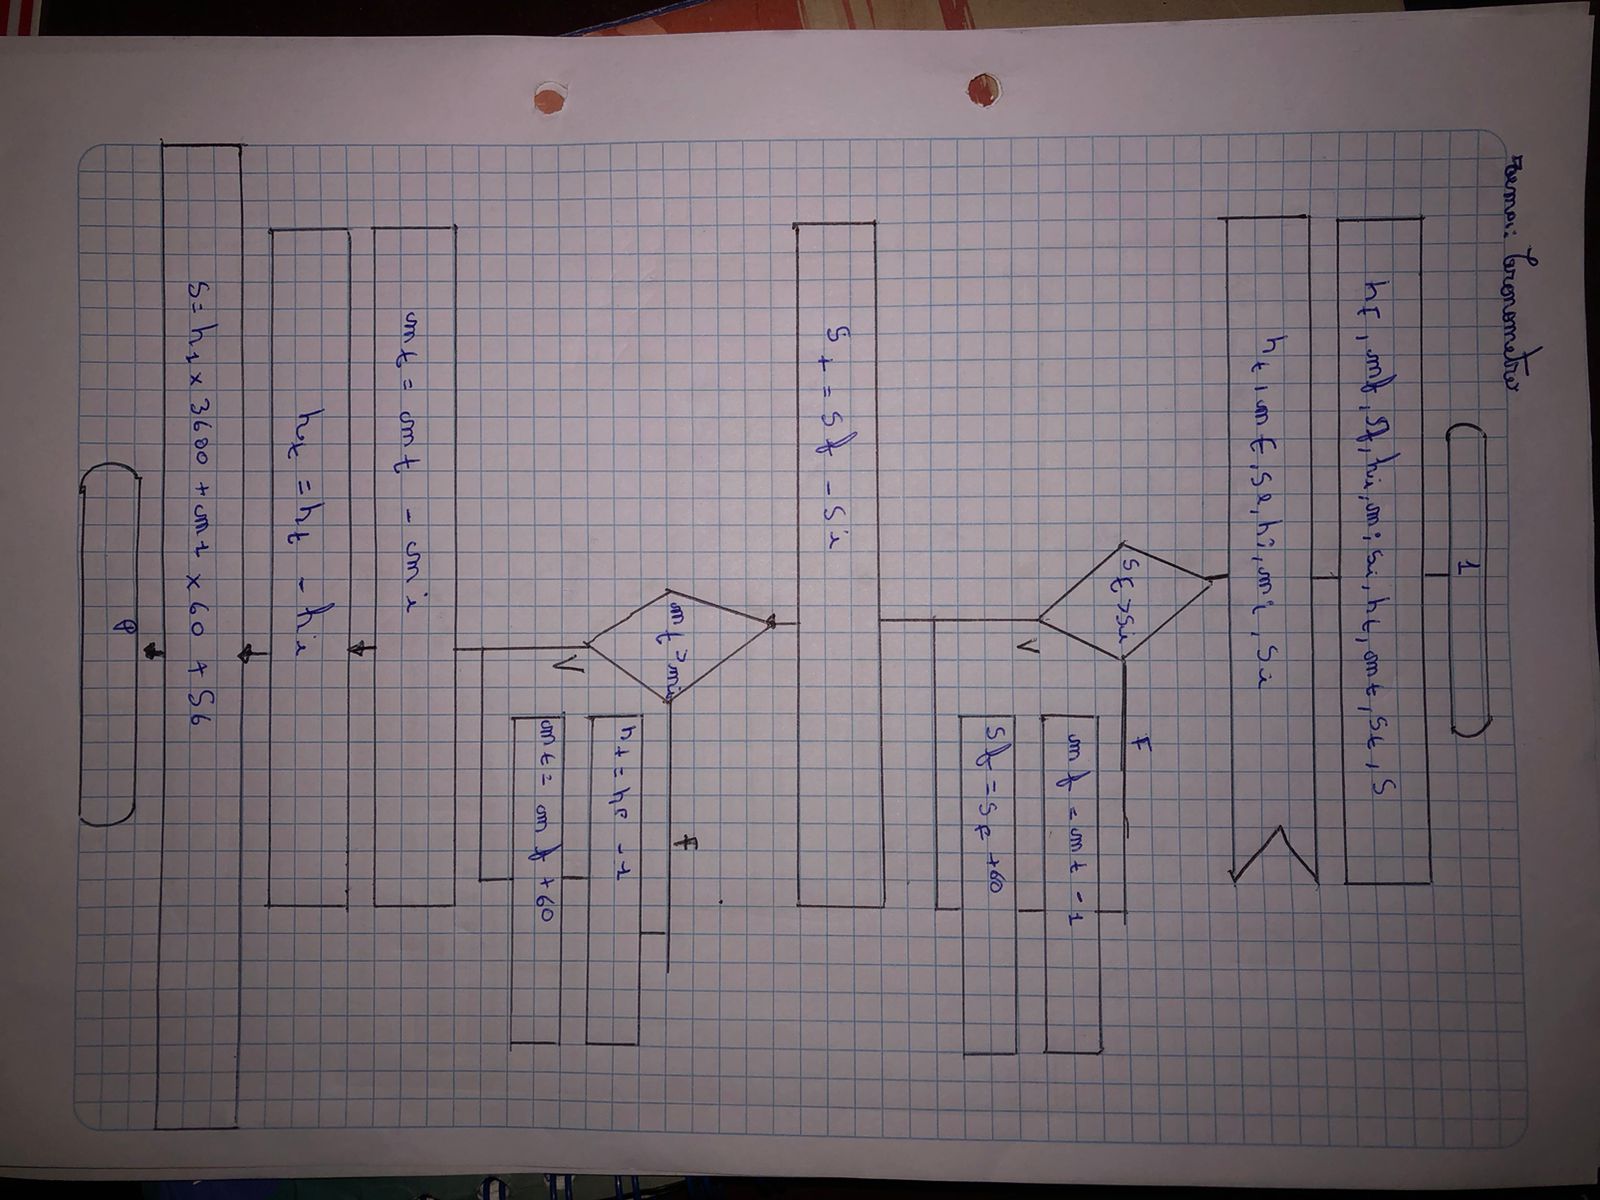 Tema: Cronometro
1
hf, mf, sf, hi, mi, si, ht, mt, st, S
ht, mt, st, hi, mi, si
st > si
F
V
mf = mt - 1
sf = sf + 60
St = Sf - Si
mt > mi
F
V
ht = hf - 1
mt = mf + 60
mt = mt - mi
ht = ht - hi
S = ht x 3600 + mt x 60 + St